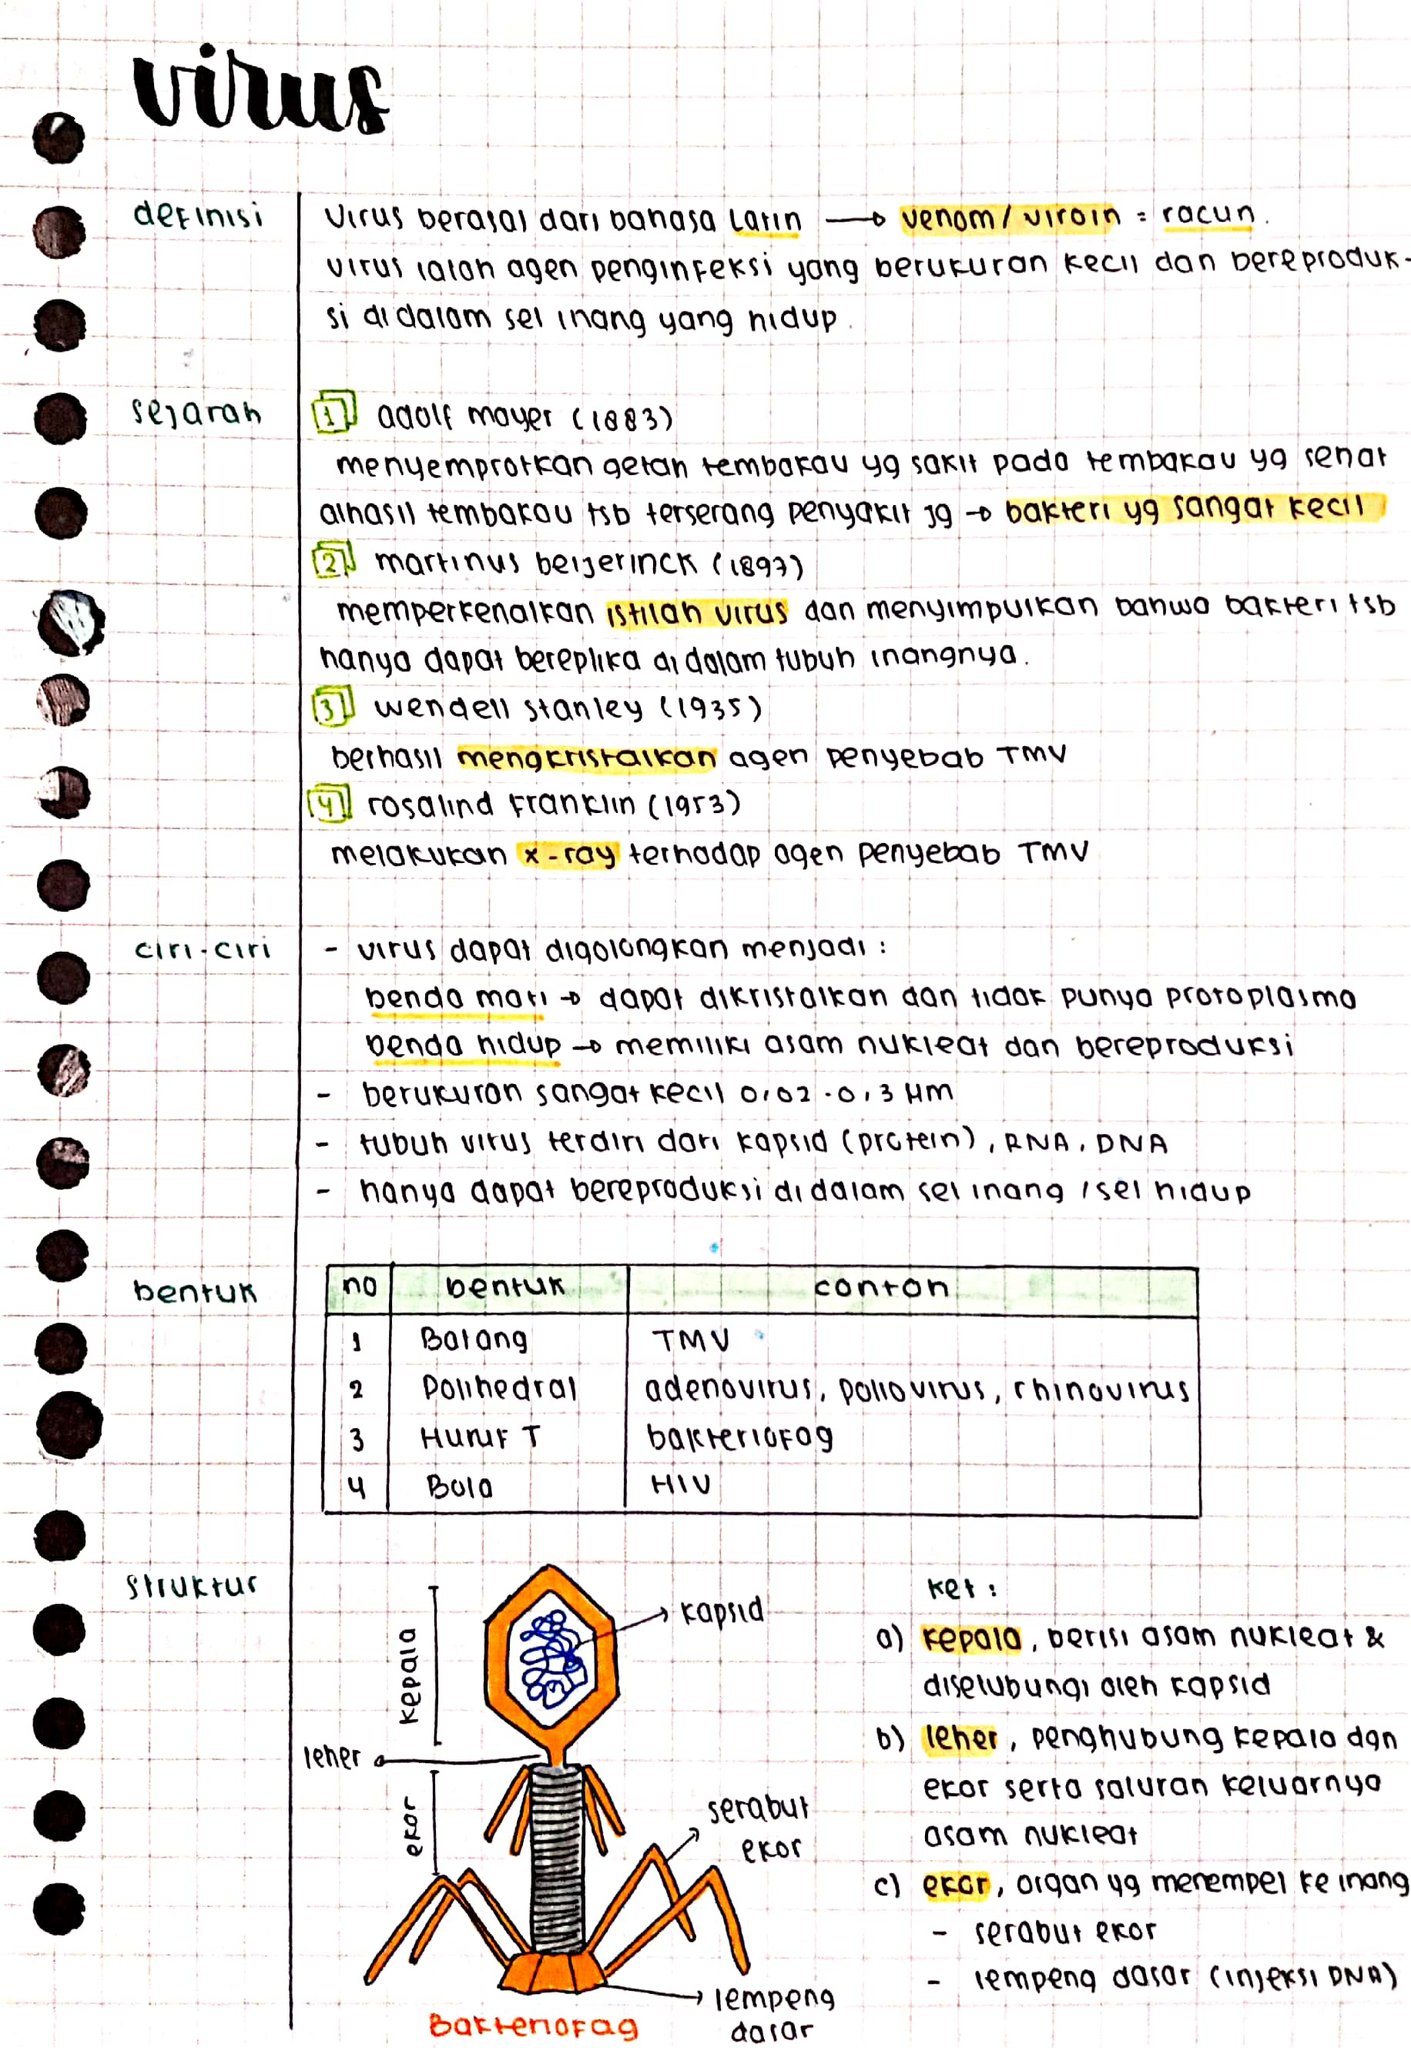 virus
definisi
virus berasal dari bahasa Latin → venom / viroin = racun.
virus ialah agen penginfeksi yang berukuran kecil dan bereproduk-
si di dalam sel inang yang hidup.
sejarah
1 adolf mayer (1883)
menyemprotkan getah tembakau yg sakit pada tembakau yg sehat
alhasil tembakau tsb terserang penyakit jg → bakteri yg sangat kecil
2 martinus beijerinck (1897)
memperkenalkan istilah virus dan menyimpulkan bahwa bakteri tsb
hanya dapat bereplika di dalam tubuh inangnya.
3 wendell stanley (1935)
berhasil mengkristalkan agen penyebab TMV
4 rosalind franklin (1953)
melakukan x-ray terhadap agen penyebab TMV
ciri-ciri
- virus dapat digolongkan menjadi :
benda mati → dapat dikristalkan dan tidak punya protoplasma
benda hidup → memiliki asam nukleat dan bereproduksi
- berukuran sangat kecil 0,02 - 0,3 μm
- tubuh virus terdiri dari kapsid (protein), RNA, DNA
- hanya dapat bereproduksi di dalam sel inang / sel hidup
bentuk
no bentuk contoh
1 Batang TMV
2 Polihedral adenovirus, poliovirus, rhinovirus
3 Huruf T bakteriofag
4 Bola HIV
struktur
kepala
kapsid
leher
ekor
serabut
ekor
lempeng
dasar
Bakteriofag
ket :
a) kepala, berisi asam nukleat &
diselubungi oleh kapsid
b) leher, penghubung kepala dgn
ekor serta saluran keluarnya
asam nukleat
c) ekor, organ yg menempel ke inang
- serabut ekor
- lempeng dasar (injeksi DNA)